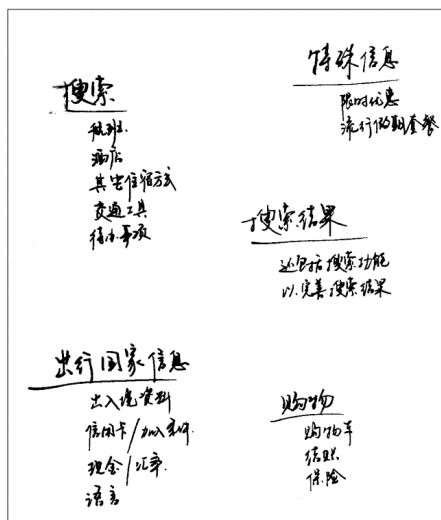 搜索
航班
酒店
其它住宿方式
交通工具
待办事项
特殊信息
限时优惠
流行假期套餐
搜索结果
还包括搜索功能
以完善搜索结果
出行国家信息
出入境资料
信用卡/加入条件
现金/汇率
语言
购物
购物车
结账
保险